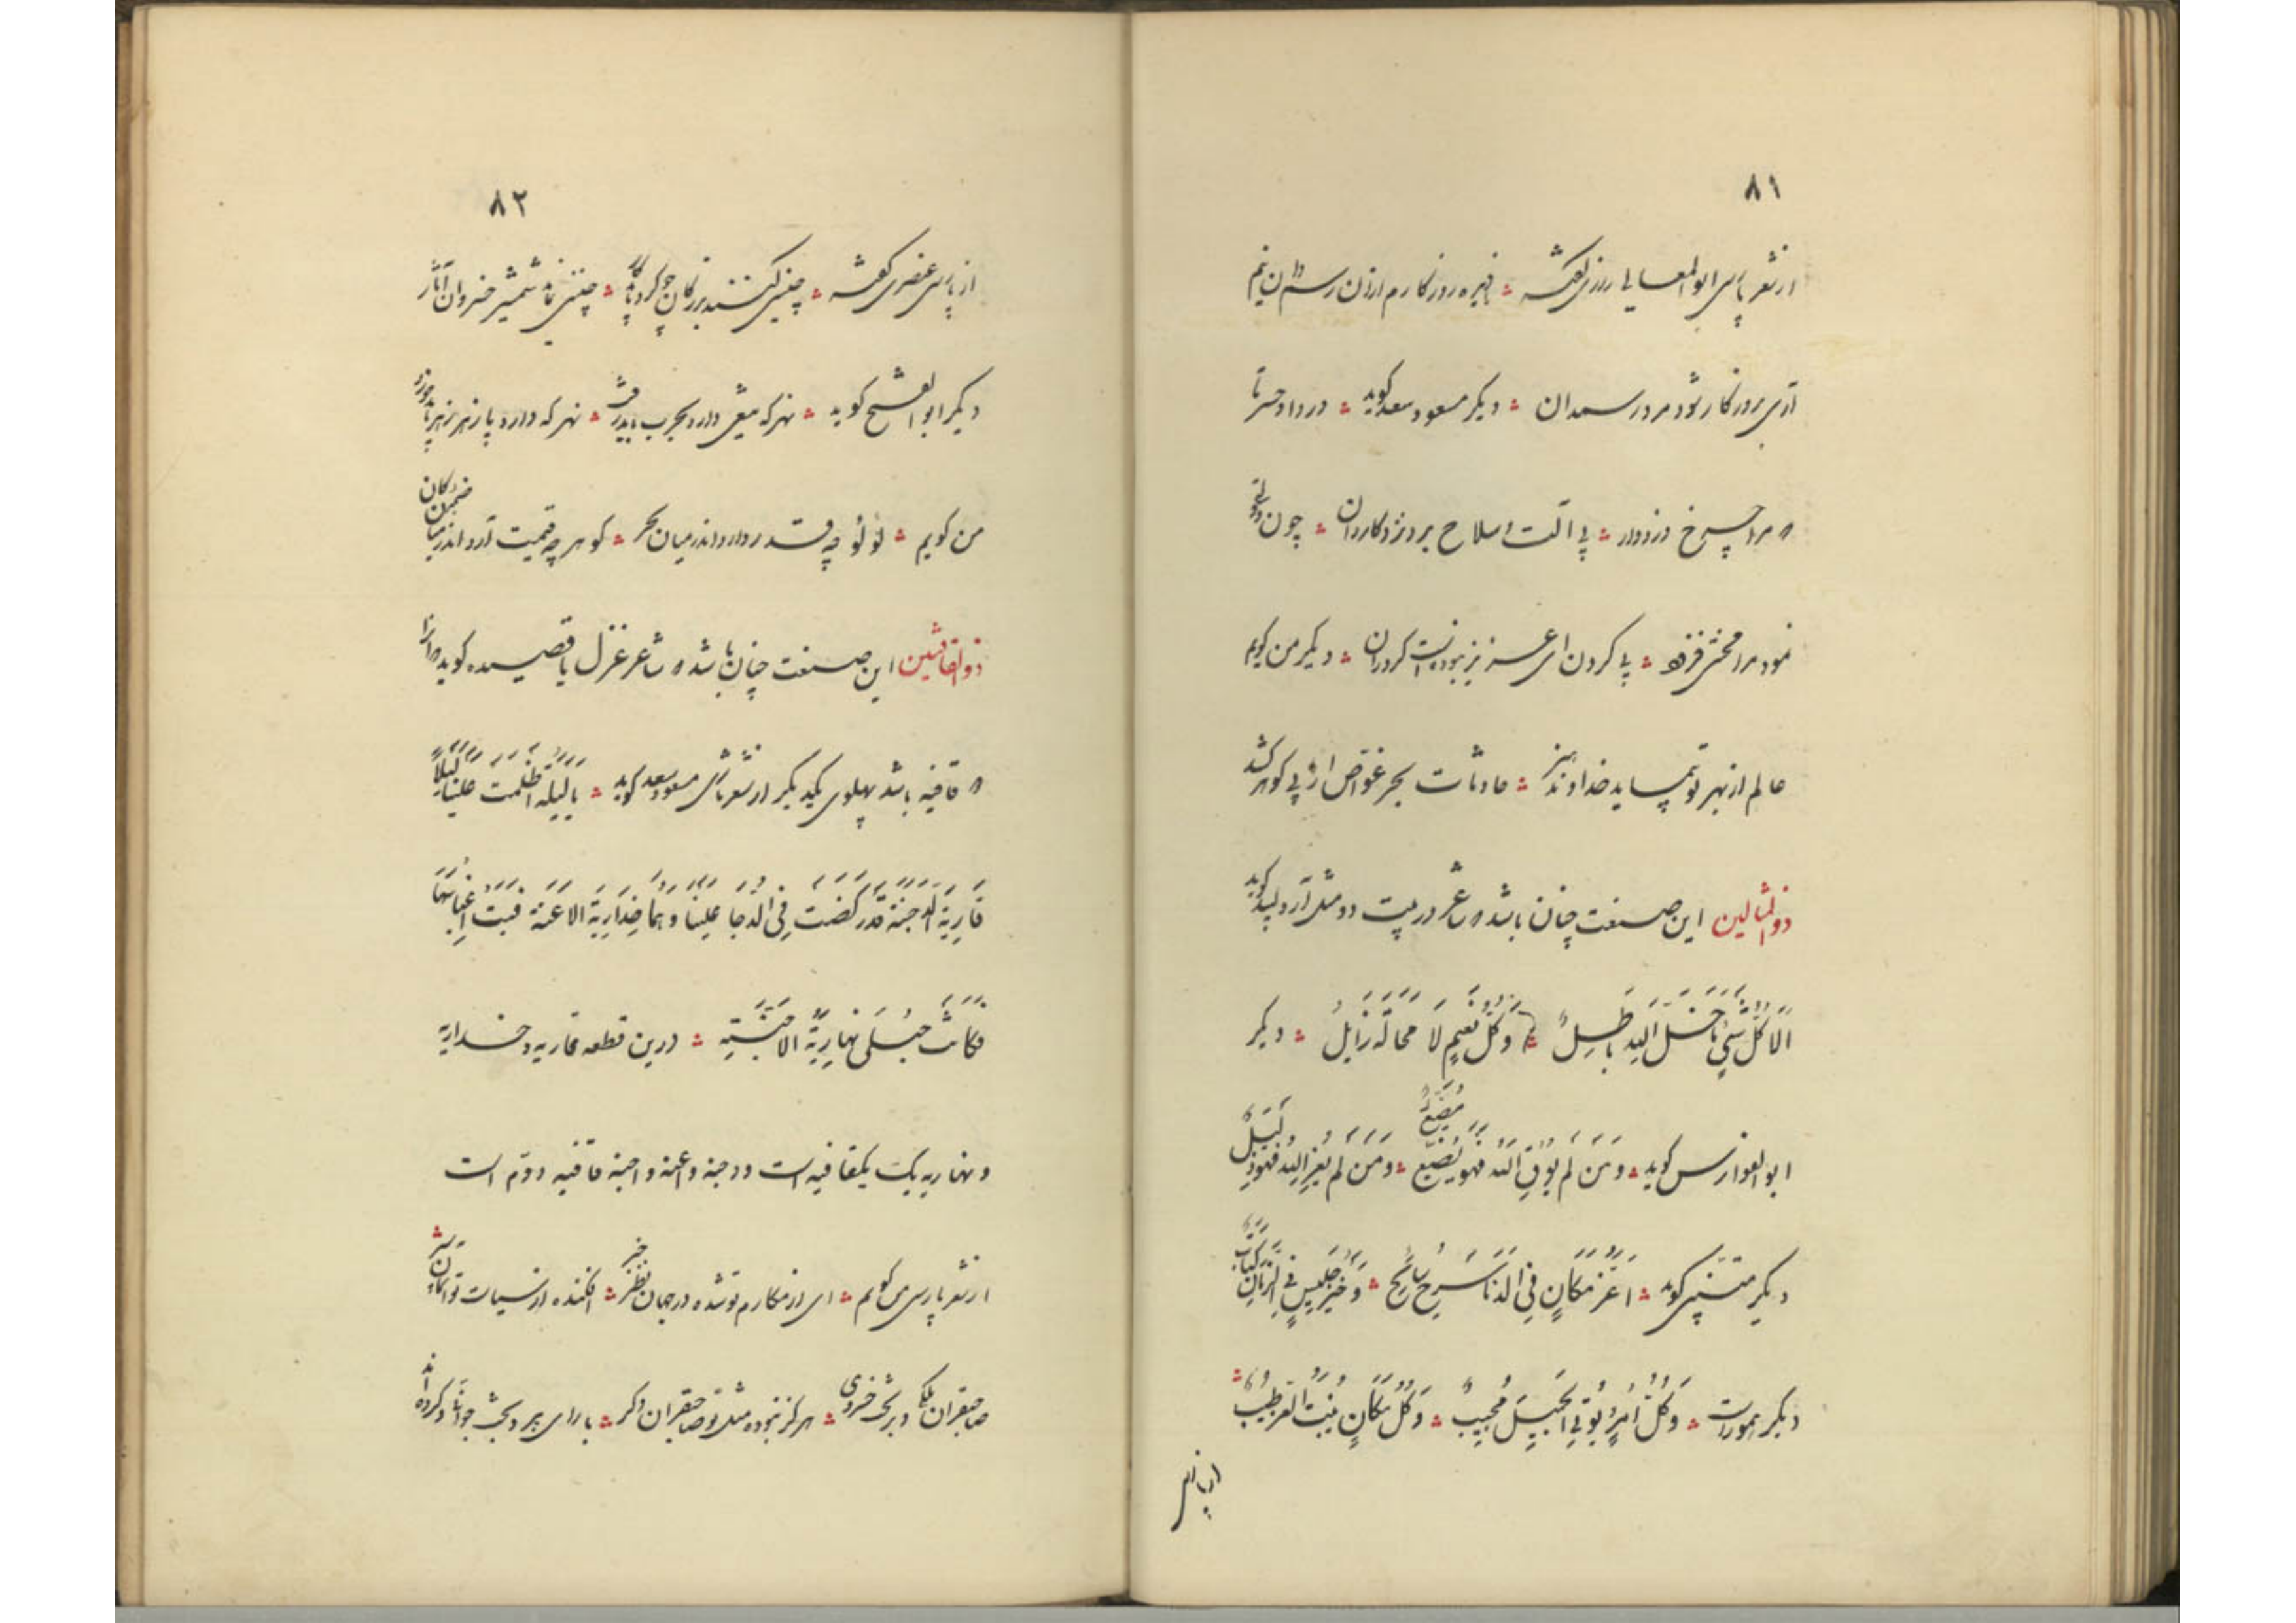 ۸۱
از شعر پارسی ابوالمعالی رازی گفته
آری بروزگار شود مرد رسیدان دیگر مسعود سعد گوید دردا و حسرتا
مرا چرخ دزدوار بی آلت و سلاح بزد کاروان چون دولتی
نمود مرا محنتی فزود بی گردن ای عزیز نبوده است گردران دیگر من گویم
عالم از بهر تو پیماید خداوند هنر حادثات بحر غواص از پی گوهر کشد
ذو المثالین این صنعت چنان باشد که شاعر در بیت دو مثل آرد لبید گوید
اَلَا کُلُّ شَیْءٍ مَا خَلَا اللهَ بَاطِلٌ وَکُلُّ نَعِیمٍ لَا مَحَالَةَ زَایِلُ دیگر
ابوالفوارس گوید وَمَنْ لَمْ یُوَقِ اللهُ فَهُوَ مُضَیَّعٌ وَمَنْ لَمْ یُعِزِّ اللهُ فَهُوَ ذَلِیلٌ
دیگر متنبی گوید اَعَزُّ مَکَانٍ فِی الدُّنَا سَرْجُ سَابِحٍ وَخَیْرُ جَلِیسٍ فِی الزَّمَانِ کِتَابٌ
دیگر هموراست وَکُلُّ امْرِءٍ یُولِی الْجَمِیلَ مُحَبَّبٌ وَکُلُّ مَکَانٍ یُنْبِتُ الْعِزَّ طَیِّبٌ
از پارسی
۸۲
از پارسی عنصری گفته چنین کنند بزرگان چو کرد باید کار چنین نماید شمشیر خسروان آثار
دیگر ابوالفتح گوید نه هرکه تیغی دارد بحرب باید رفت نه هرکه دارد پازهر زهر باید خورد
من گویم لؤلؤ چه قدر دارد اندر میان بحر گوهر چه قیمت آرد اندر میان کان
ذو القافیتین این صنعت چنان باشد که شاعر غزل یا قصیده گوید که آنرا
قافیه باشد پهلوی یکدیگر از شعر تازی مسعود سعد گوید یَا لَیْلَةً اَظْلَمَتْ عَلَیْنَا لَیْلَاءَ
قَارِیَةَ الدُّجُنَّة قَدْ رَکَضَتْ فِی الدُّجَا عَلَیْنَا دُهْمًا خُدَارِیَةَ الْاَعِنَّة فَبِتُّ
فَکَانَتْ حُبْلَی نَهَارِیَّةَ الْاَجِنَّةِ درین قطعه قاریه و خداریه
و نهاریه یک قافیه است و دجنه و اعنه و اجنه قافیه دوم است
از شعر پارسی من گویم ای از مکارم تو شده در جهان خبر افکنده از سیاست تو آسمان سپر
صاحبقران ملکی و بر تخت خسروی هرگز نبوده مثل تو صاحبقران دگر با رای پیر و بخت جوانی